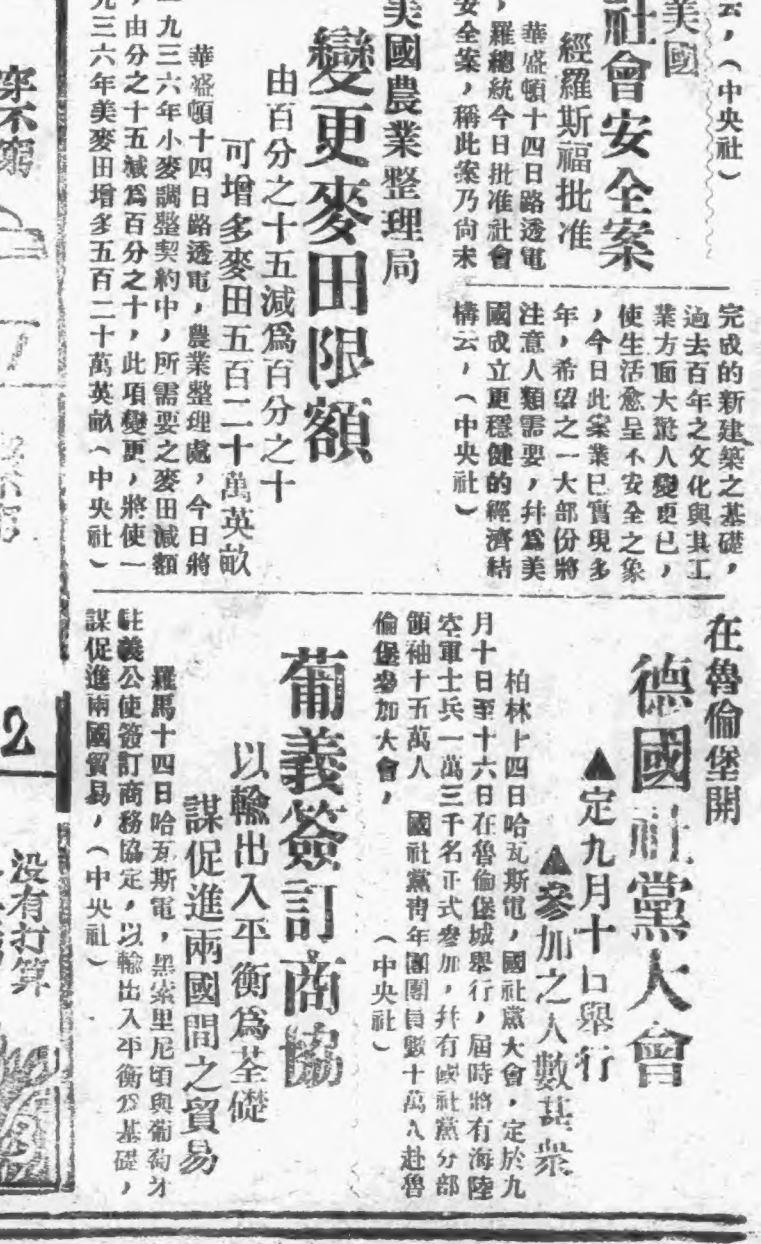 云，（中央社）
美國
社會安全案
經羅斯福批准
華盛頓十四日路透電
，羅總統今日批准社會
安全案，稱此案乃尙未
完成的新建築之基礎，
過去百年之文化與其工
業方面大驚人變更已，
使生活愈呈不安全之象
，今日此案業已實現多
年，希望之一大部份將
注意人類需要，幷爲美
國成立更穩健的經濟結
構云，（中央社）
美國農業整理局
變更麥田限額
由百分之十五減爲百分之十
可增多麥田五百二十萬英畝
華盛頓十四日路透電，農業整理處，今日將
一九三六年小麥調整契約中，所需要之麥田減額
，由分之十五減爲百分之十，此項變更，將使一
九三六年美麥田增多五百二十萬英畝（中央社）
在魯倫堡開
德國社黨大會
▲定九月十日舉行
▲參加之人數甚衆
柏林十四日哈瓦斯電，國社黨大會，定於九
月十日至十六日在魯倫堡城舉行，屆時將有海陸
空軍士兵一萬三千名正式參加，幷有國社黨分部
領袖十五萬人　國社黨靑年團團員數十萬人赴魯
倫堡參加大會，（中央社）
葡義簽訂商協
以輸出入平衡爲荃礎
謀促進兩國間之貿易
羅馬十四日哈瓦斯電，黑索里尼頃與葡萄牙
駐義公使簽訂商務協定，以輸出入平衡爲基礎，
謀促進兩國貿易，（中央社）
穿不窮
2
没有打算